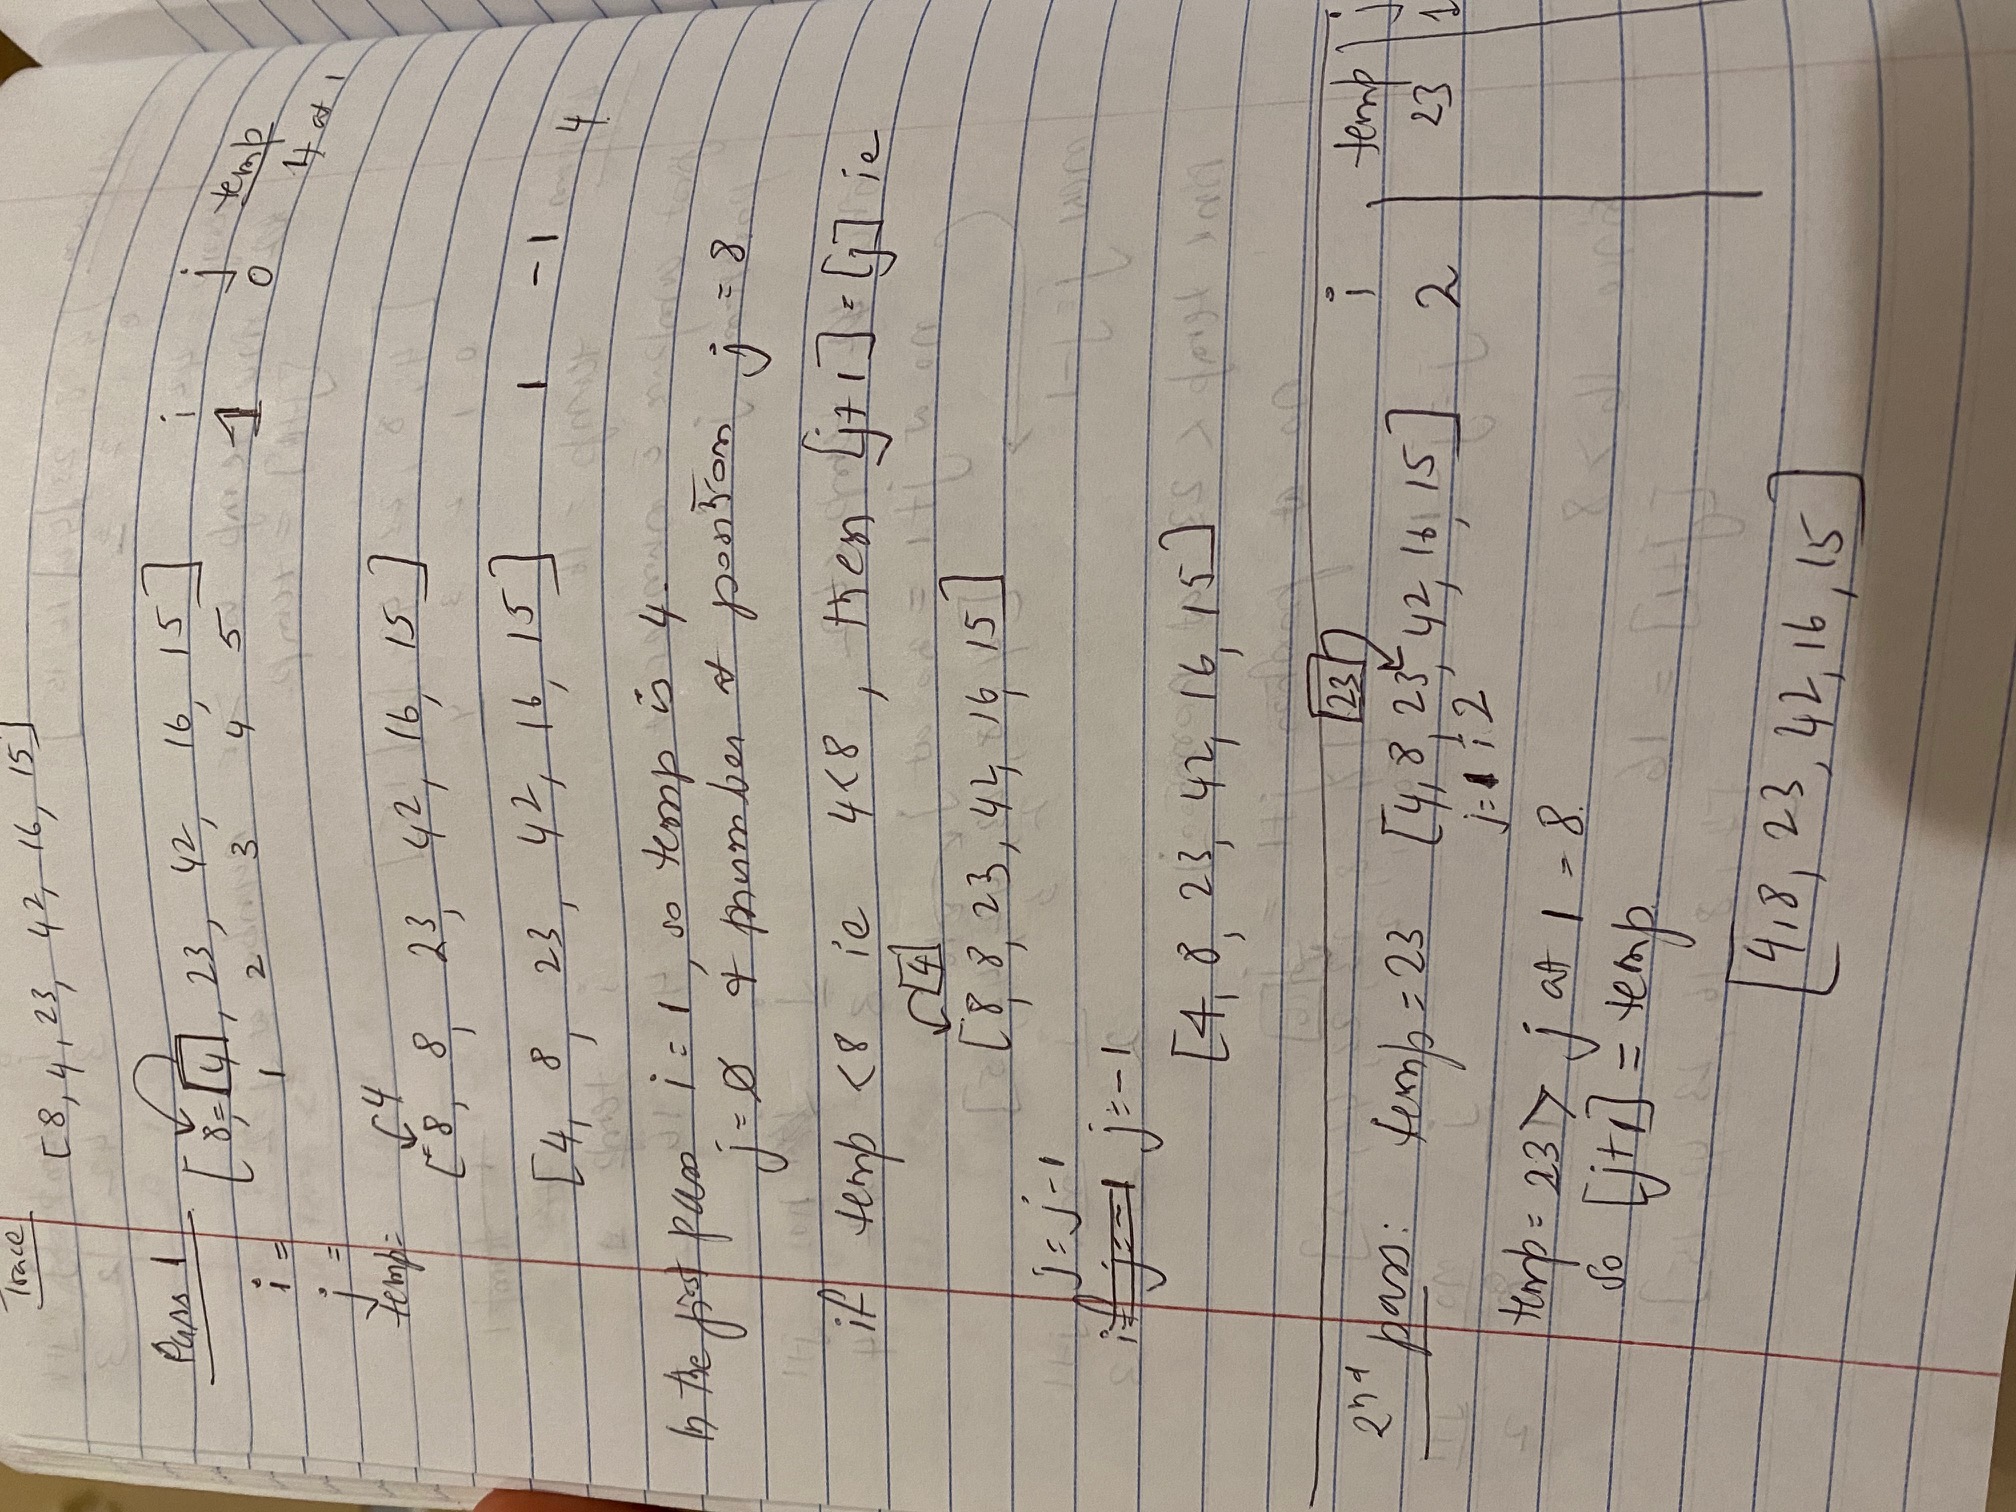 Trace
[8, 4, 23, 42, 16, 15]
Pass 1 [8, 4, 23, 42, 16, 15] i j temp
i = 1 2 3 4 5 1 0 4 at 1
j =
temp= 4
[8, 8, 23, 42, 16, 15]
[4, 8, 23, 42, 16, 15] 1 -1 4
In the first pass i = 1, so temp is 4.
j = 0 & number at position j = 8
if temp < 8 ie 4<8, then [j+1] = [j] ie
4
[8, 8, 23, 42, 16, 15]
j = j-1
if j = -1 j = -1
[4, 8, 23, 42, 16, 15]
23 i temp j
2nd pass: temp = 23 [4, 8, 23, 42, 16, 15] 2 23 1
j=1 i 2
temp = 23 > j at 1 = 8.
so [j+1] = temp.
[4, 8, 23, 42, 16, 15]